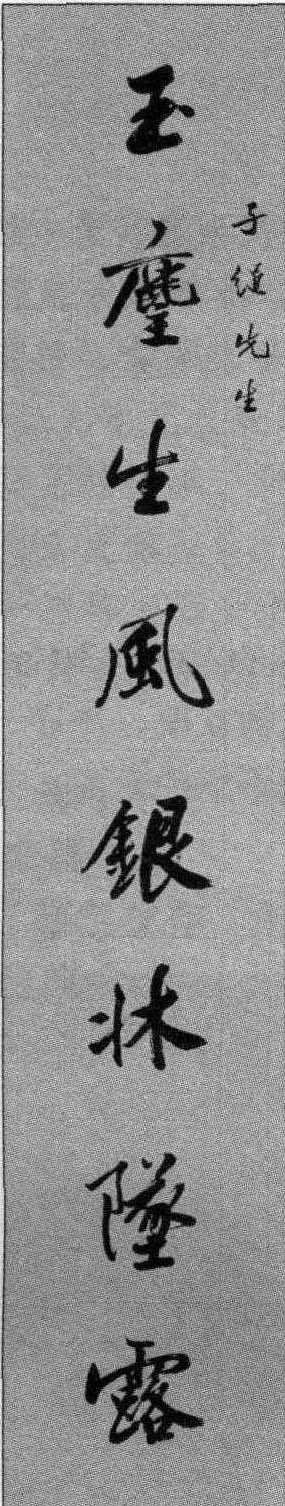 子先生
玉麈生風銀牀墜露